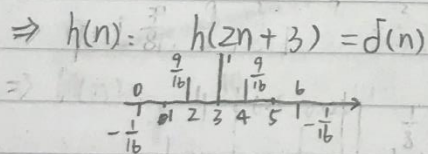 ⇒ h(n): h(2n+3) = δ(n)
9/16 1 9/16
0 1 2 3 4 5 6
-1/16 -1/16